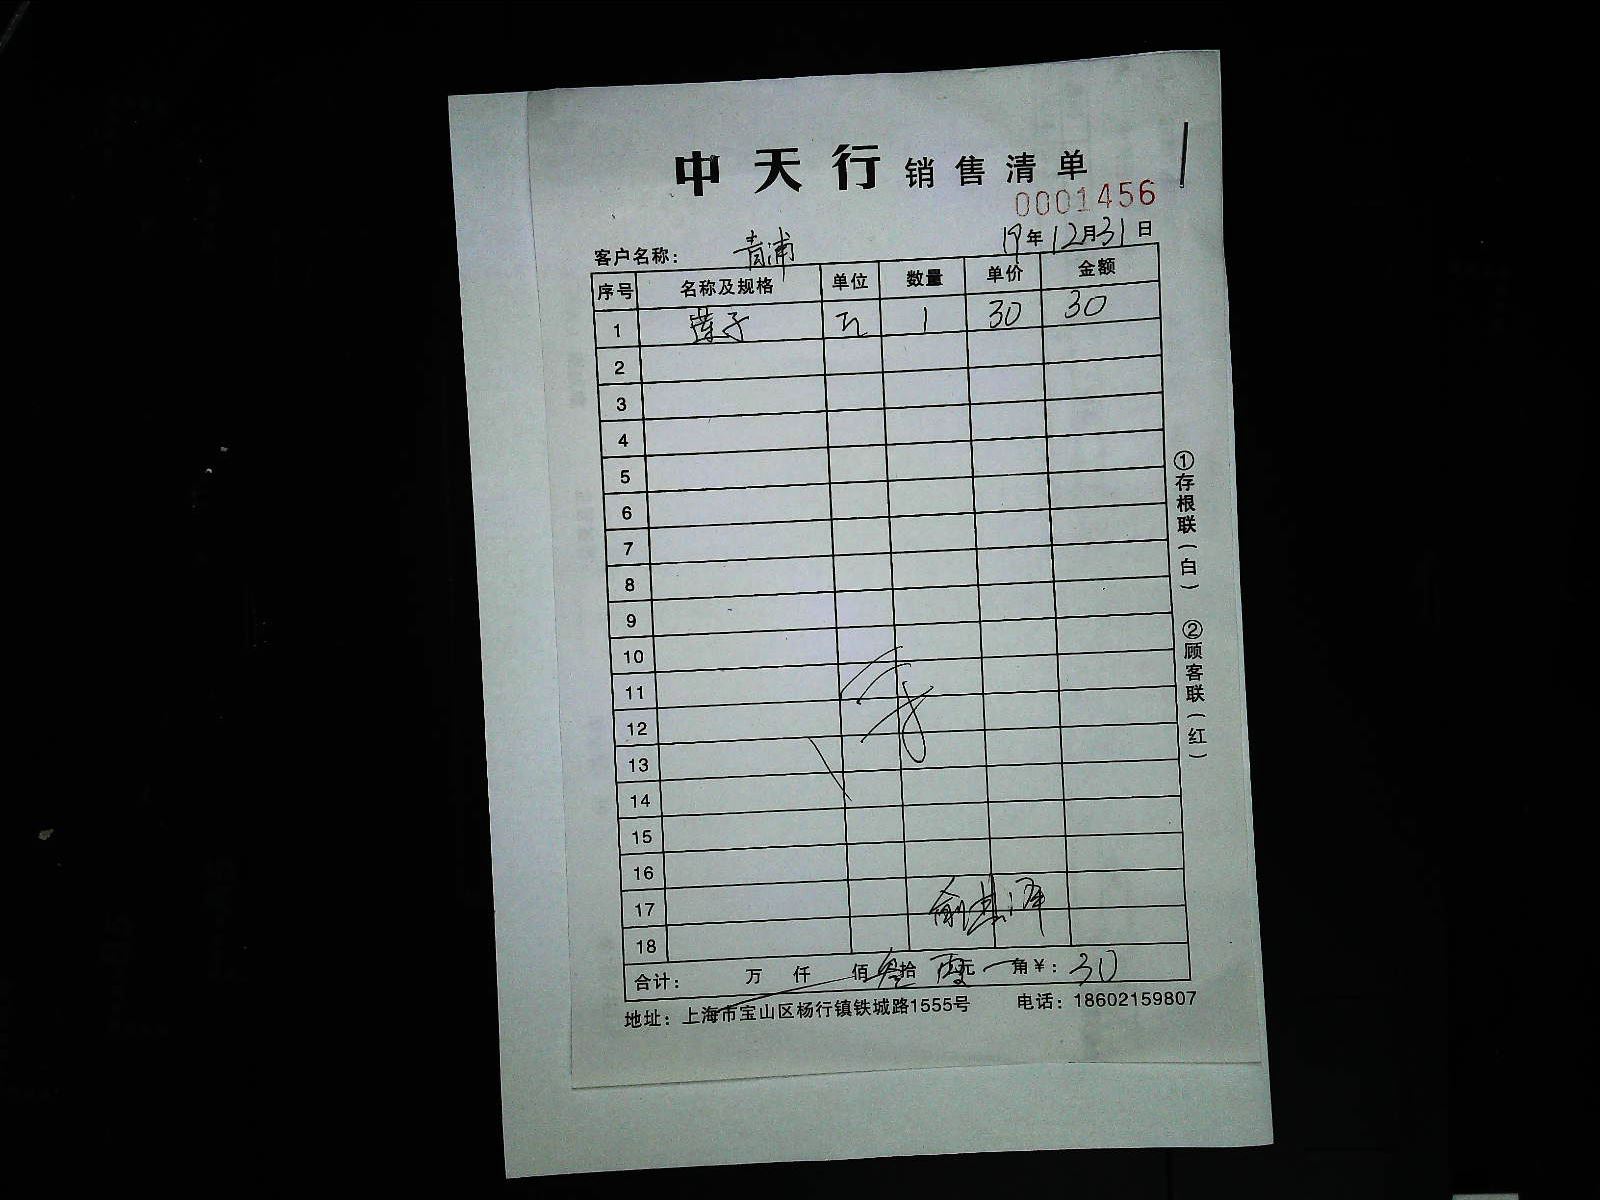 中天行 销售清单
0001456
客户名称: 青浦 19年12月31日
序号 名称及规格 单位 数量 单价 金额
1 莲子 1 30 30
2
3
4
5
6
7
8
9
10
11
12
13
14
15
16
17
18
合计: 万 仟 佰叁拾 元 角¥: 30
地址: 上海市宝山区杨行镇铁城路1555号 电话: 18602159807
①存根联(白) ②顾客联(红)